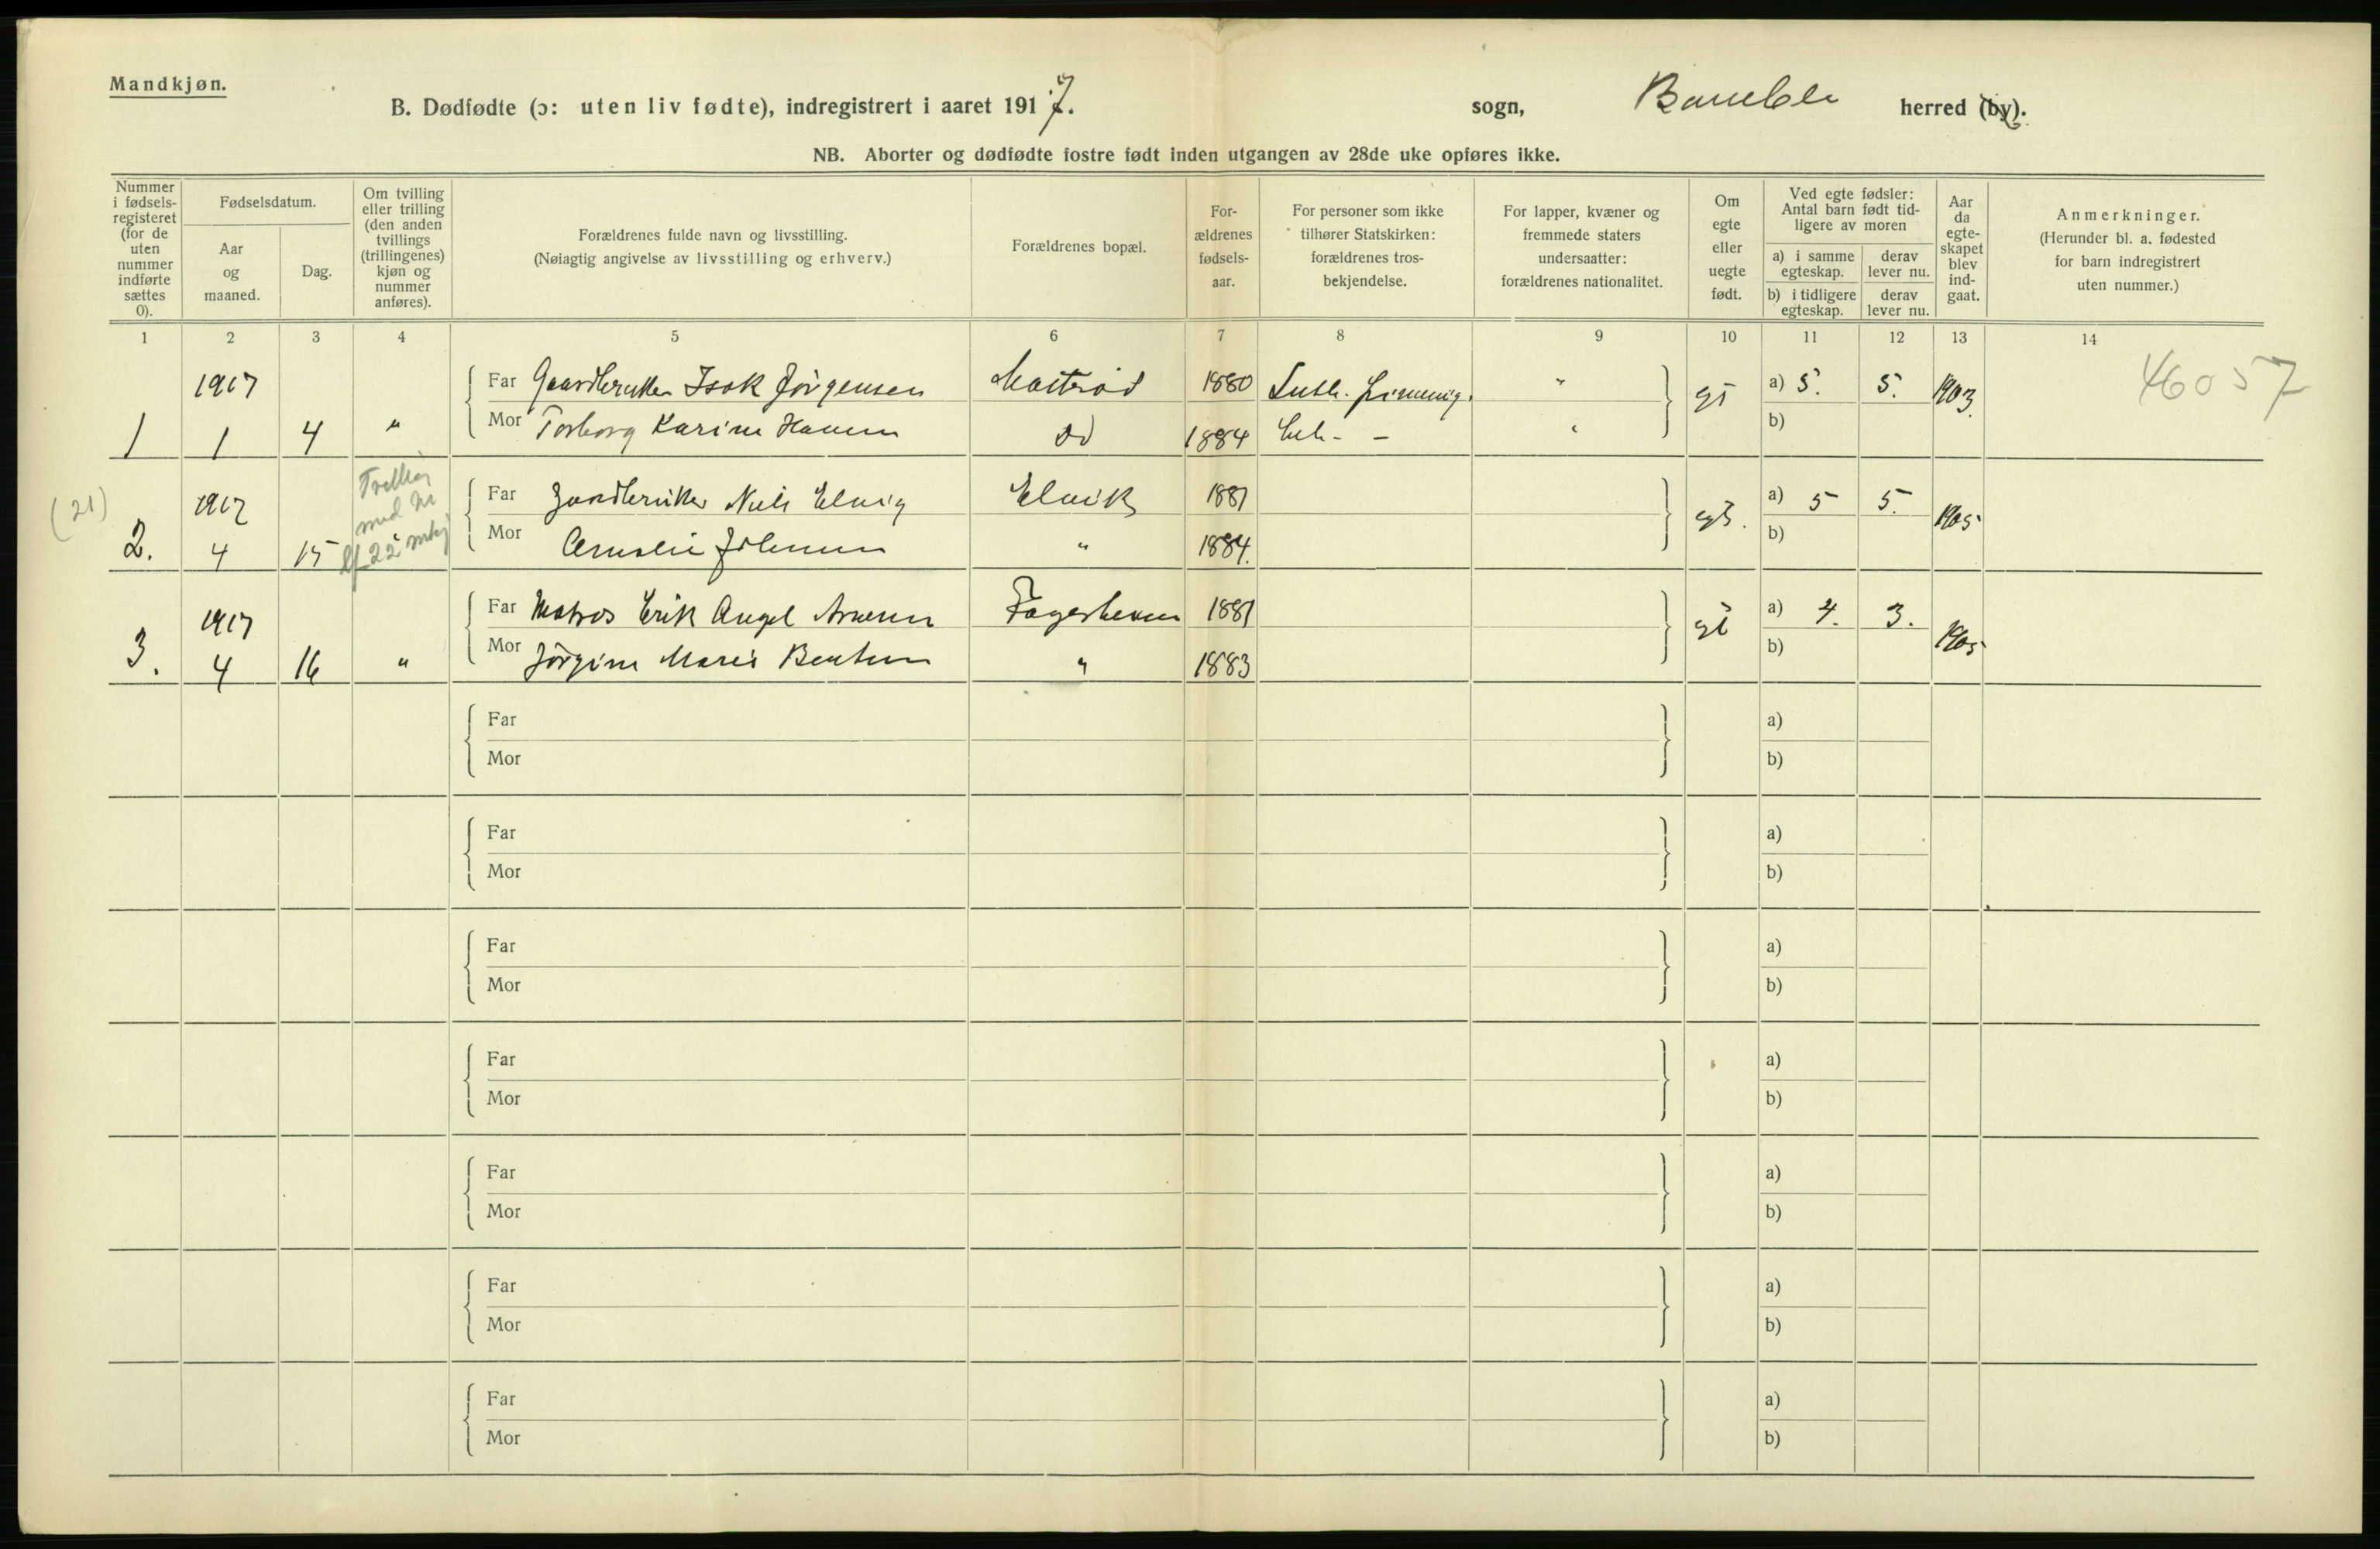 Mandkjøn.
B. Dødfødte (ɔ: uten liv fødte), indregistrert i aaret 1917.
sogn, Bamble herred (by).
NB. Aborter og dødfødte fostre født inden utgangen av 28de uke opføres ikke.
Nummer i fødsels-registeret (for de uten nummer indførte sættes 0).
Fødselsdatum.
Aar og maaned.
Dag.
Om tvilling eller trilling (den anden tvillings (trillingenes) kjøn og nummer anføres).
Forældrenes fulde navn og livsstilling.
(Nøiagtig angivelse av livsstilling og erhverv.)
Forældrenes bopæl.
For-ældrenes fødsels-aar.
For personer som ikke tilhører Statskirken: forældrenes tros-bekjendelse.
For lapper, kvæner og fremmede staters undersaatter: forældrenes nationalitet.
Om egte eller uegte født.
Ved egte fødsler: Antal barn født tid-ligere av moren
a) i samme egteskap. derav lever nu.
b) i tidligere egteskap. derav lever nu.
Aar da egte-skapet blev ind-gaat.
Anmerkninger.
(Herunder bl. a. fødested for barn indregistrert uten nummer.)
1 2 3 4 5 6 7 8 9 10 11 12 13 14
46057
1917 Far Gaardbruker Isak Jörgensen 1880 Luth. " a) 5. 5. 1903
1 1 4 " Mor Torborg Karine Hansen 1884 " b)
(21) 1917 Far Niels Elvig Elvik 1881 a) 5 5. 1905
2. 4 15 Mor " 1884. b)
1917 Far Matros Erik Angel 1881 a) 4. 3. 1905
3. 4 16 " Mor Jörgine " 1883 b)
Far a)
Mor b)
Far a)
Mor b)
Far a)
Mor b)
Far a)
Mor b)
Far a)
Mor b)
Far a)
Mor b)
Far a)
Mor b)